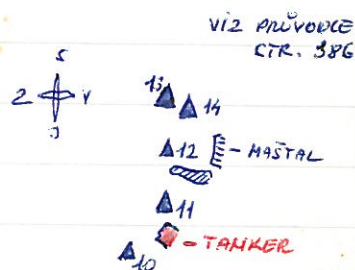 VIZ PRŮVODCE
STR. 386
S
Z V
J
13
14
12 - MAŠTAL
11
- TANKER
10